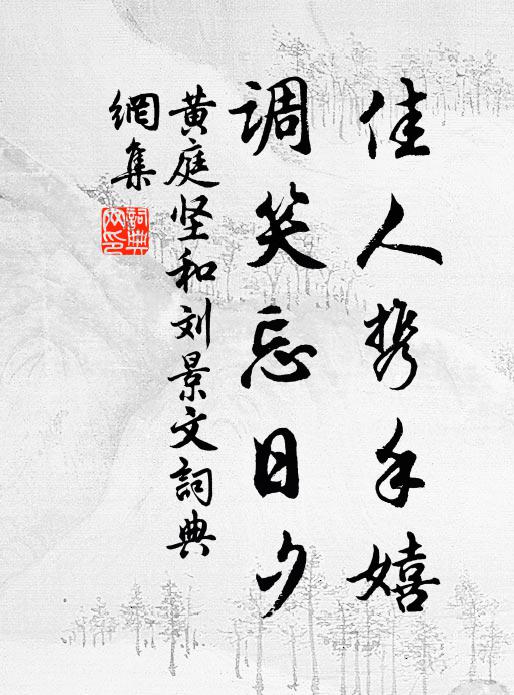 佳人携手嬉
调笑忘日夕
黄庭坚和刘景文詞典
網集
詞典
网印